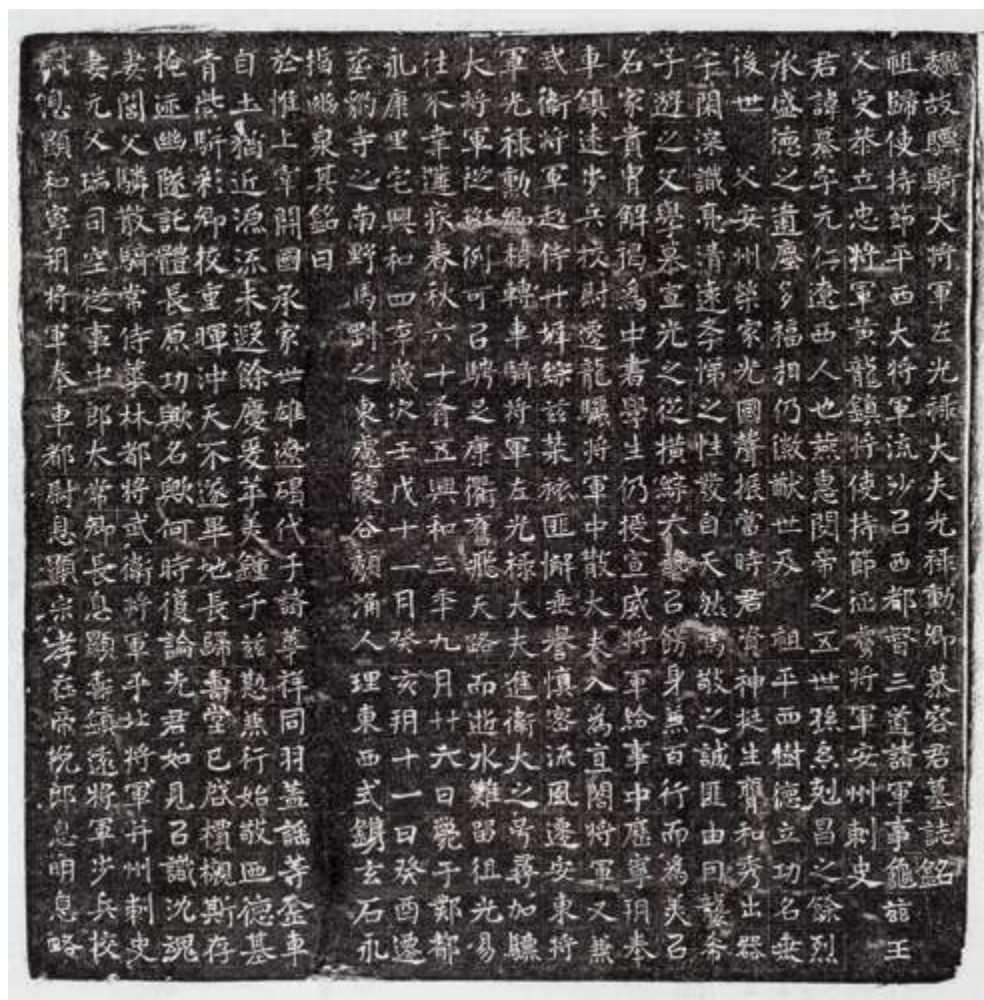 魏故驃騎大將軍左光祿大夫光祿勳卿慕容君墓誌銘
祖歸使持節平西大將軍流沙已西都督三道諸軍事龜茲王
父受恭立忠將軍黃龍鎮將使持節征虜將軍安州刺史
君諱纂字元仁遼西人也燕惠閔帝之五世孫系剋昌之餘烈
承盛德之遺慶多福相仍徽猷世及　祖平西樹德立功名垂
後世　父安州榮家光國聲振當時君資神挺生膺和秀出器
宇閑深識亮清遠孝悌之性發自天然篤敬之誠匪由回
子遊之文學慕宣光之從橫綜六藝已餝身兼百行而為美已
名家貴胄解褐為中書學生仍授宣威將軍給事中歷寧朔奉
車鎮遠步兵校尉遷龍驤將軍中散大夫入為直閤將軍又兼
武衛將軍起侍丹墀綜茲禁旅匪懈垂譽慎密流風遷安東將
軍光祿勳卿轉車騎將軍左光祿大夫進衛大之号尋加驃
大將軍從班例可已騁足康衢奮飛天路而逝水難留徂光易
往不幸遘疾春秋六十有五興和三年九月廿六日薨于鄴都
永康里宅興和四年歲次壬戌十一月癸亥朔十一日癸酉遷
豹寺之南野馬之東慮陵谷人理東西式鐫玄石永
指幽泉其銘曰
於惟上宰開國承家世雄遼碣代子諸華祥同羽蓋謠等金車
自土猶近源流未遐餘慶爰萃美鍾于茲懃燕行始敬迺德基
青紫斯彩卿校重暉沖天不遂畢地長歸壽堂已啓櫬斯存
掩迹幽隧託體長原功歟名歟何時復論先君如見已識沈魂
妻閭父驎散騎常侍羽林都將武衛將軍平北將軍并州刺史
妻元父瑞司空從事中郎大常卿長息顯壽鎮遠將軍步兵校
尉息顯和寧朔將軍奉車都尉息顯宗孝莊帝挽郎息明息略